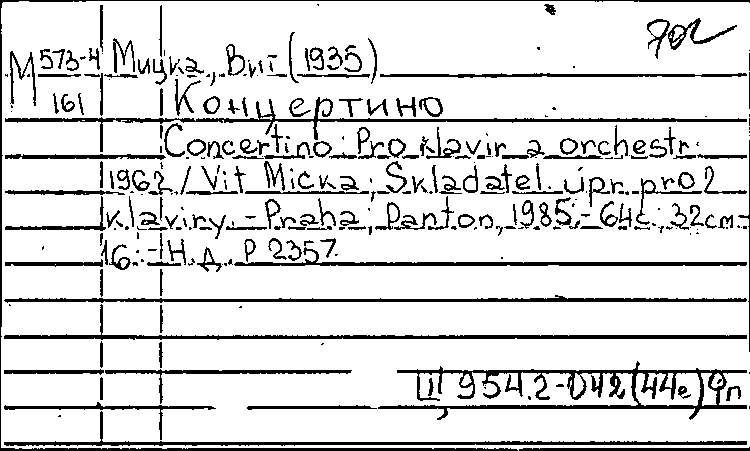 702
М 573-4 Мицка, Вит (1935)
161 Концертино
Concertino: Pro klavir a orchestr.
1962 / Vit Micka; Skladatel. úpr. pro 2
klaviry. - Praha; Panton, 1985. - 64с.; 32cm -
16. - Н. д. Р 2357.
Щ 954.2-042(44е)фп